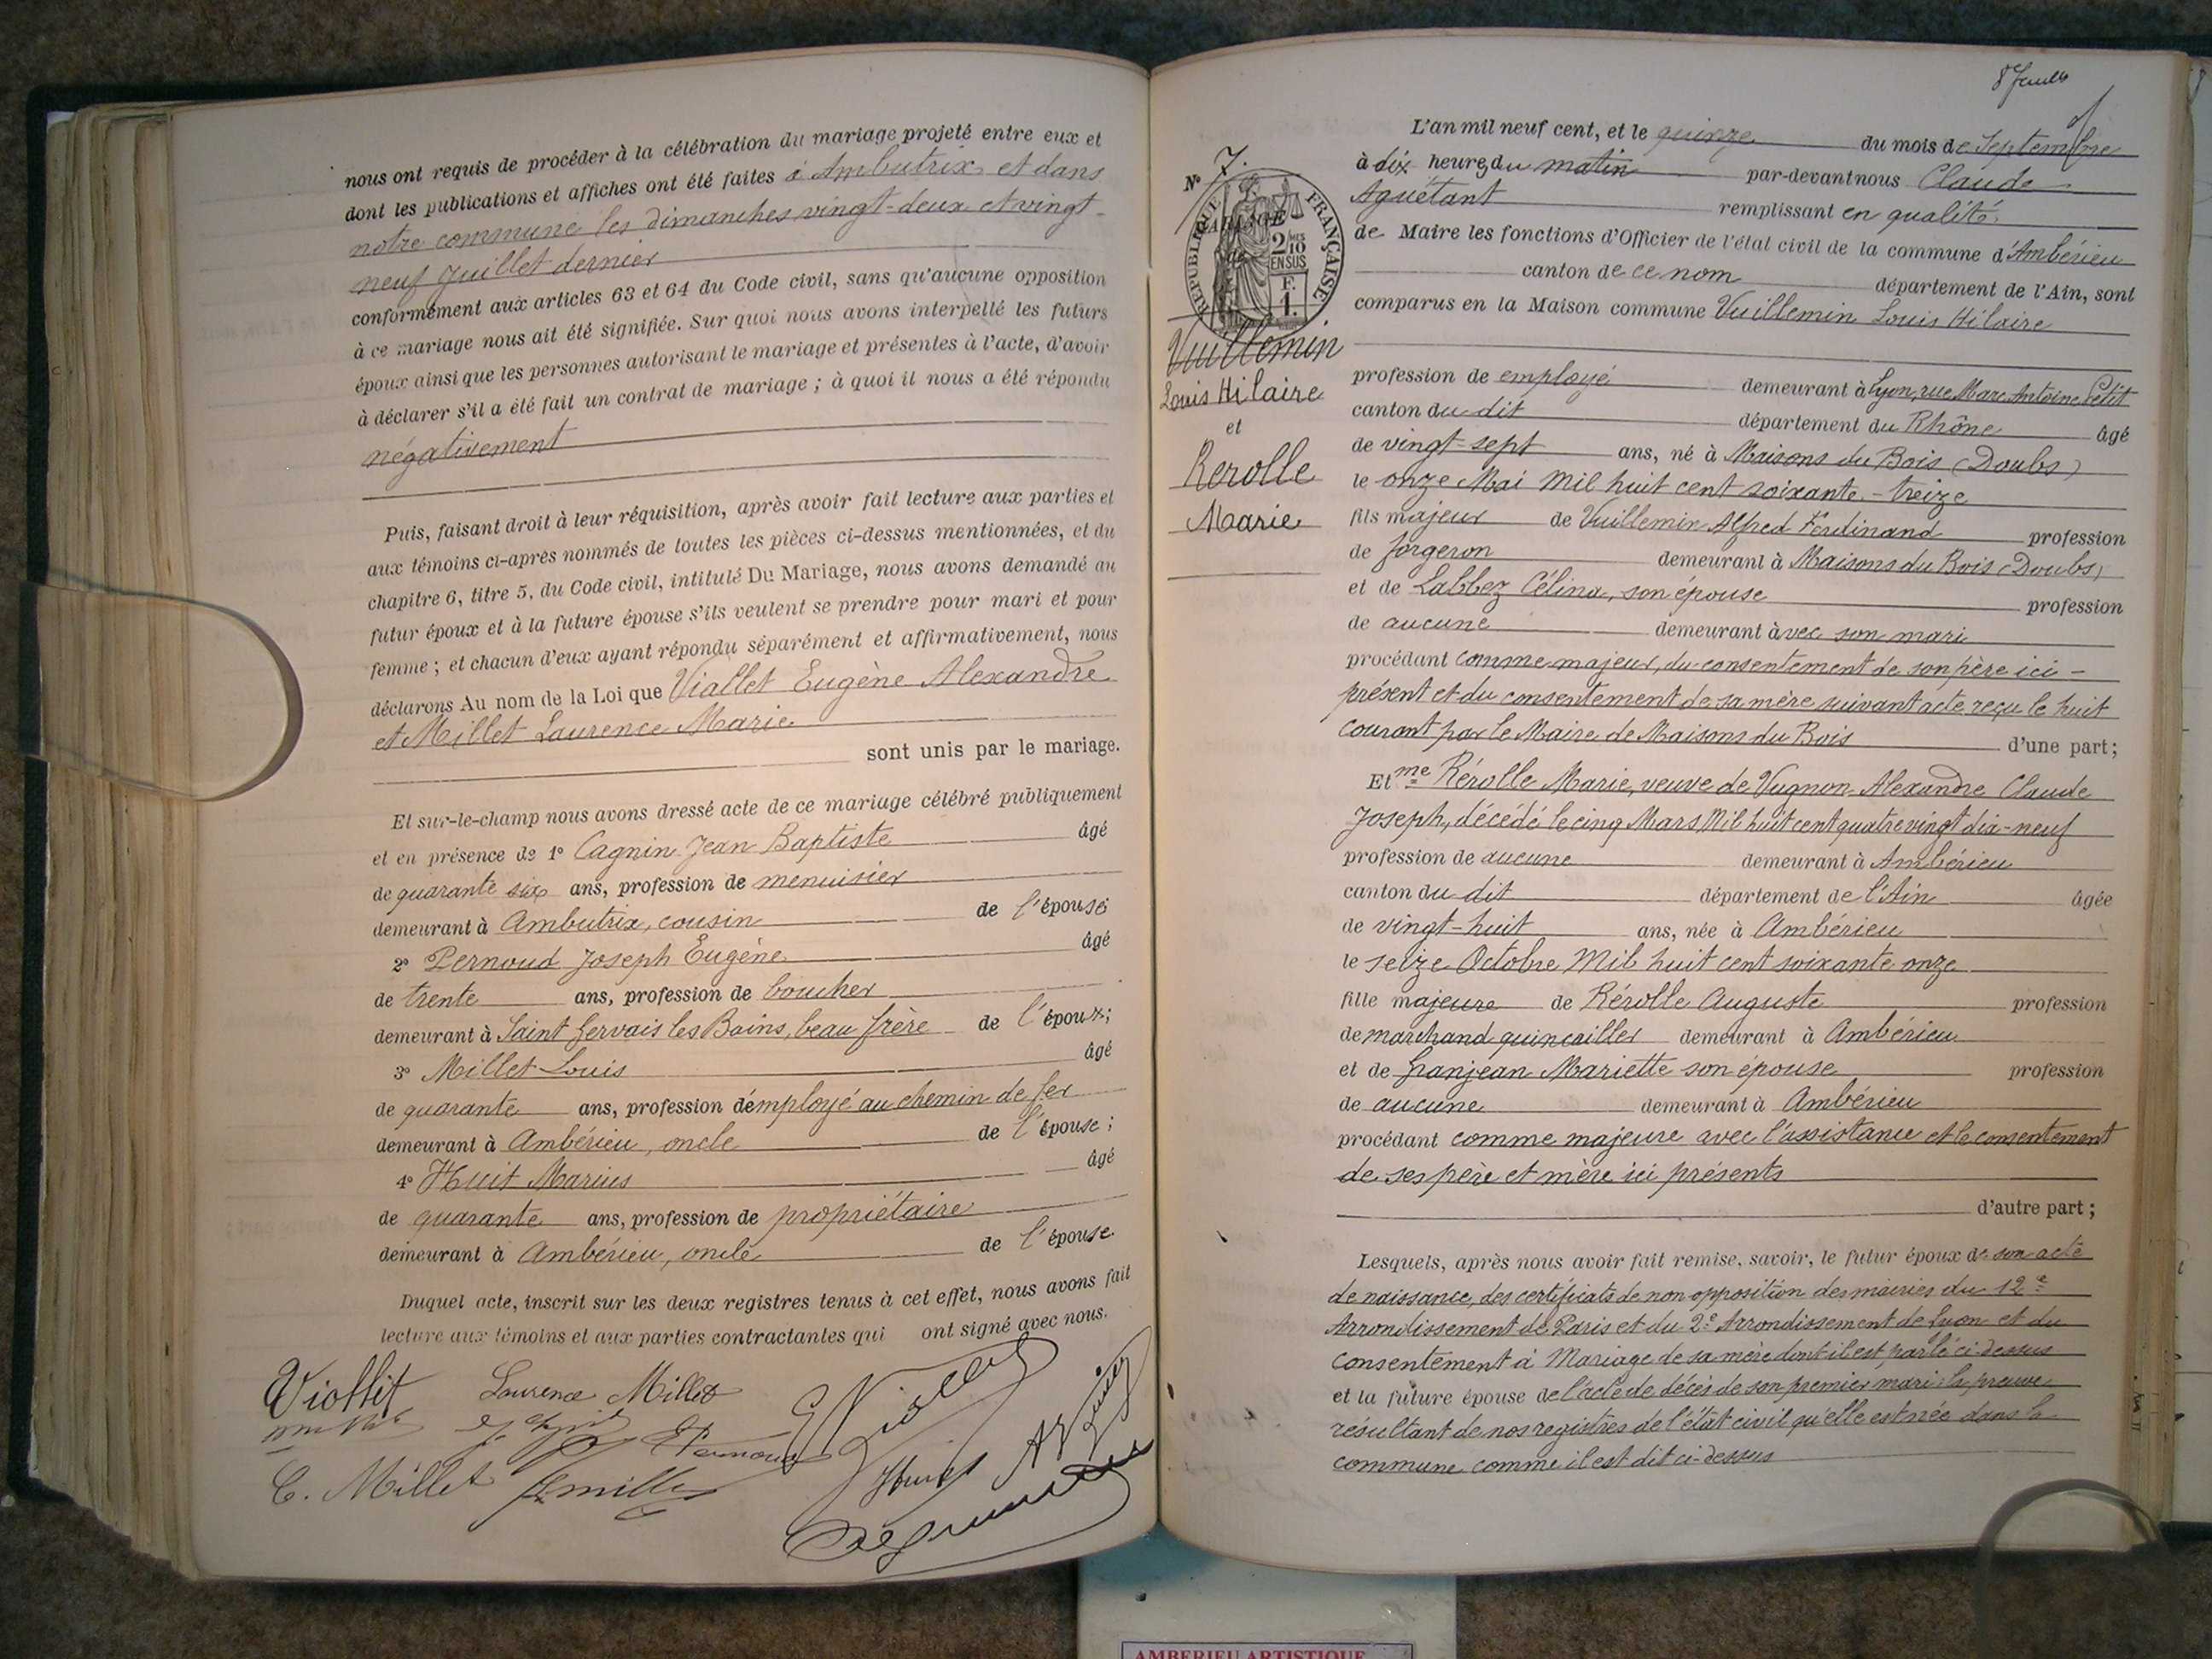 nous ont requis de procéder à la célébration du mariage projeté entre eux et
dont les publications et affiches ont été faites à Ambutrix et dans
notre commune les dimanches vingt-deux et vingt-
neuf Juillet dernier
conformément aux articles 63 et 64 du Code civil, sans qu'aucune opposition
à ce mariage nous ait été signifiée. Sur quoi nous avons interpellé les futurs
époux ainsi que les personnes autorisant le mariage et présentes à l'acte, d'avoir
à déclarer s'il a été fait un contrat de mariage ; à quoi il nous a été répondu
négativement
Puis, faisant droit à leur réquisition, après avoir fait lecture aux parties et
aux témoins ci-après nommés de toutes les pièces ci-dessus mentionnées, et du
chapitre 6, titre 5, du Code civil, intitulé Du Mariage, nous avons demandé au
futur époux et à la future épouse s'ils veulent se prendre pour mari et pour
femme ; et chacun d'eux ayant répondu séparément et affirmativement, nous
déclarons Au nom de la Loi que Viallet Eugène Alexandre
et Millet Laurence Marie
sont unis par le mariage.
Et sur-le-champ nous avons dressé acte de ce mariage célébré publiquement
et en présence de 1° Cagnin Jean Baptiste âgé
de quarante six ans, profession de menuisier
demeurant à Ambutrix, cousin de l'épouse
2° Pernoud Joseph Eugène âgé
de trente ans, profession de boucher
demeurant à Saint Gervais les Bains, beau frère de l'époux;
3° Millet Louis âgé
de quarante ans, profession d'employé au chemin de fer
demeurant à Ambérieu, oncle de l'épouse ;
4° Huit Marius âgé
de quarante ans, profession de propriétaire
demeurant à Ambérieu, oncle de l'épouse.
Duquel acte, inscrit sur les deux registres tenus à cet effet, nous avons fait
lecture aux témoins et aux parties contractantes qui ont signé avec nous.
Laurence Millet
Pernoud
C. Millet
8e feuille
N° 7.
MARIAGE
RÉPUBLIQUE FRANÇAISE
2/10 MES
EN SUS
F.
1.
Vuillemin
Louis Hilaire
et
Rerolle
Marie
L'an mil neuf cent, et le quinze du mois de Septembre
à dix heures du matin par-devant nous Claude
Aguétant remplissant en qualité
de Maire les fonctions d'Officier de l'état civil de la commune d'Ambérieu
canton de ce nom département de l'Ain, sont
comparus en la Maison commune Vuillemin Louis Hilaire
profession de employé demeurant à Lyon, rue Marc Antoine Petit
canton du dit département du Rhône âgé
de vingt-sept ans, né à Maisons du Bois (Doubs)
le onze Mai Mil huit cent soixante-treize
fils majeur de Vuillemin Alfred Ferdinand profession
de forgeron demeurant à Maisons du Bois (Doubs)
et de Labbez Célina, son épouse profession
de aucune demeurant avec son mari
procédant comme majeur, du consentement de son père ici-
présent et du consentement de sa mère suivant acte reçu le huit
courant par le Maire de Maisons du Bois d'une part;
Et me Rérolle Marie, veuve de Vugnon Alexandre Claude
Joseph, décédé le cinq Mars Mil huit cent quatre vingt dix-neuf
profession de aucune demeurant à Ambérieu
canton du dit département de l'Ain âgée
de vingt-huit ans, née à Ambérieu
le seize Octobre Mil huit cent soixante onze
fille majeure de Rérolle Auguste profession
de marchand quincailler demeurant à Ambérieu
et de Granjean Mariette son épouse profession
de aucune demeurant à Ambérieu
procédant comme majeure avec l'assistance et le consentement
de ses père et mère ici présents
d'autre part ;
Lesquels, après nous avoir fait remise, savoir, le futur époux de son acte
de naissance, des certificats de non opposition des mairies du 12e
Arrondissement de Paris et du 2e Arrondissement de Lyon et du
consentement à Mariage de sa mère dont il est parlé ci-dessus
et la future épouse de l'acte de décès de son premier mari ; la preuve
résultant de nos registres de l'état civil qu'elle est née dans la
commune comme il est dit ci-dessus
AMBERIEU ARTISTIQUE